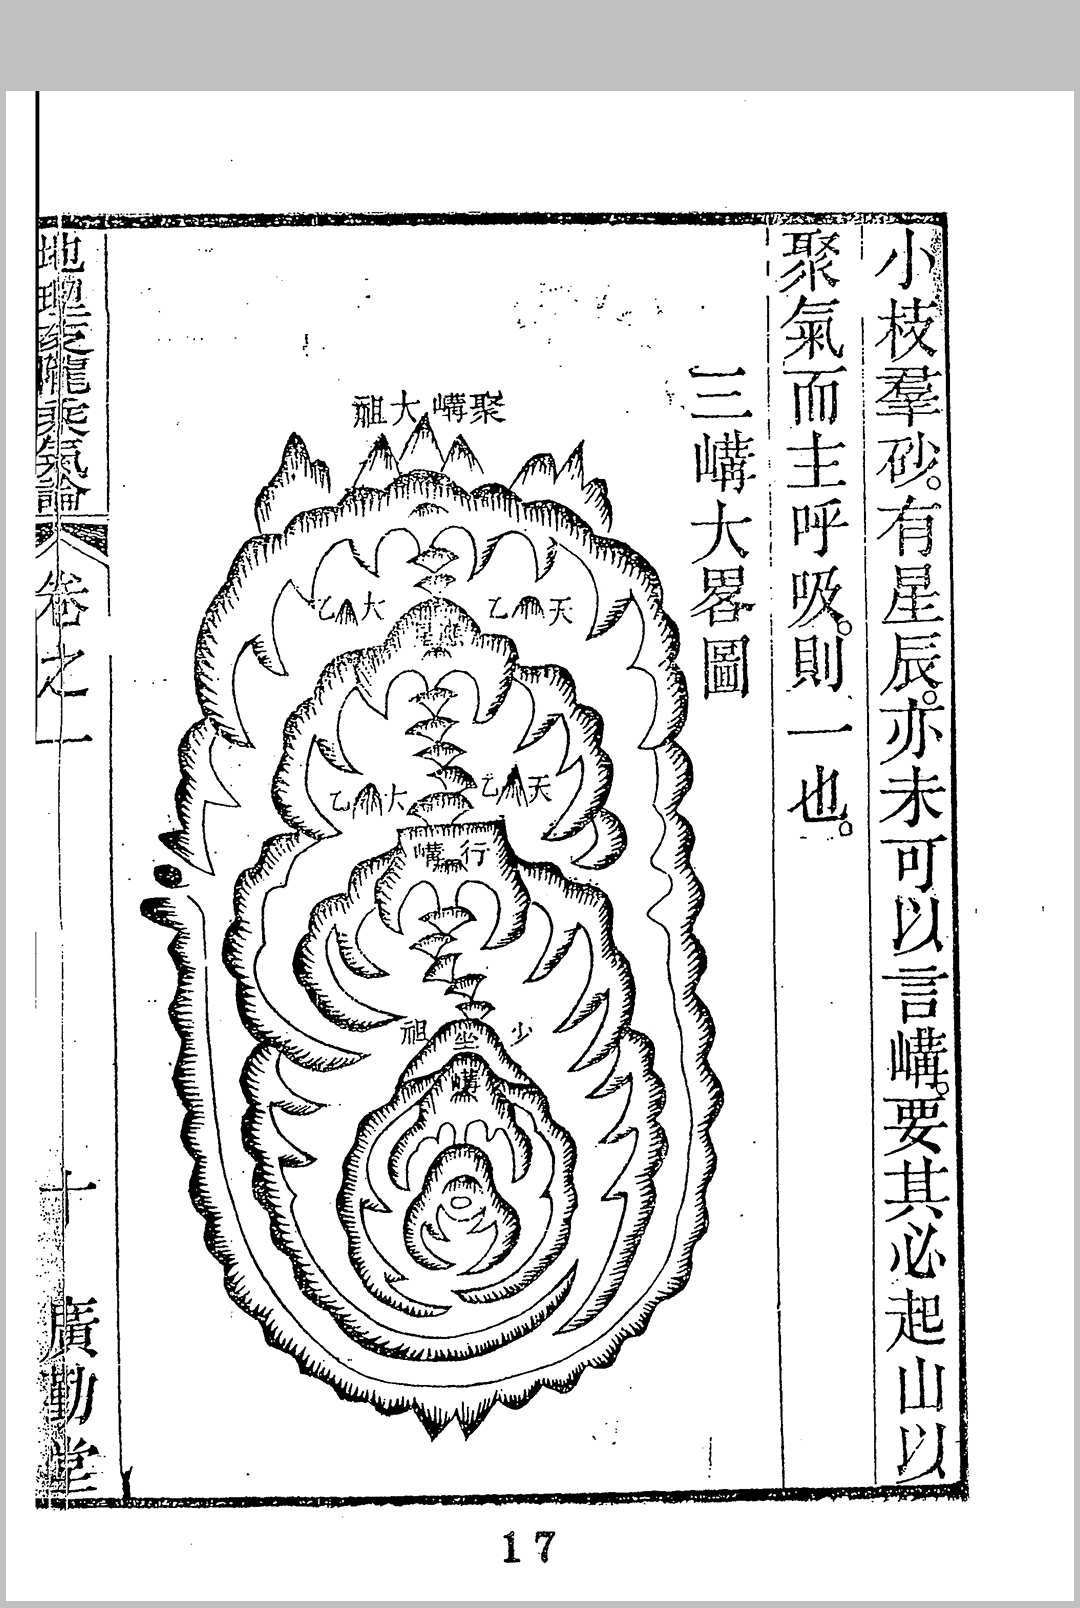 小枝羣砂。有星辰。亦未可以言嶹。要其必起山以
聚氣而主呼吸。則一也。
三嶹大畧圖
聚嶹大祖
天乙
大乙
天乙
大乙
行嶹
少祖
坐嶹
乘氣論
卷之一
十
廣勤堂
17